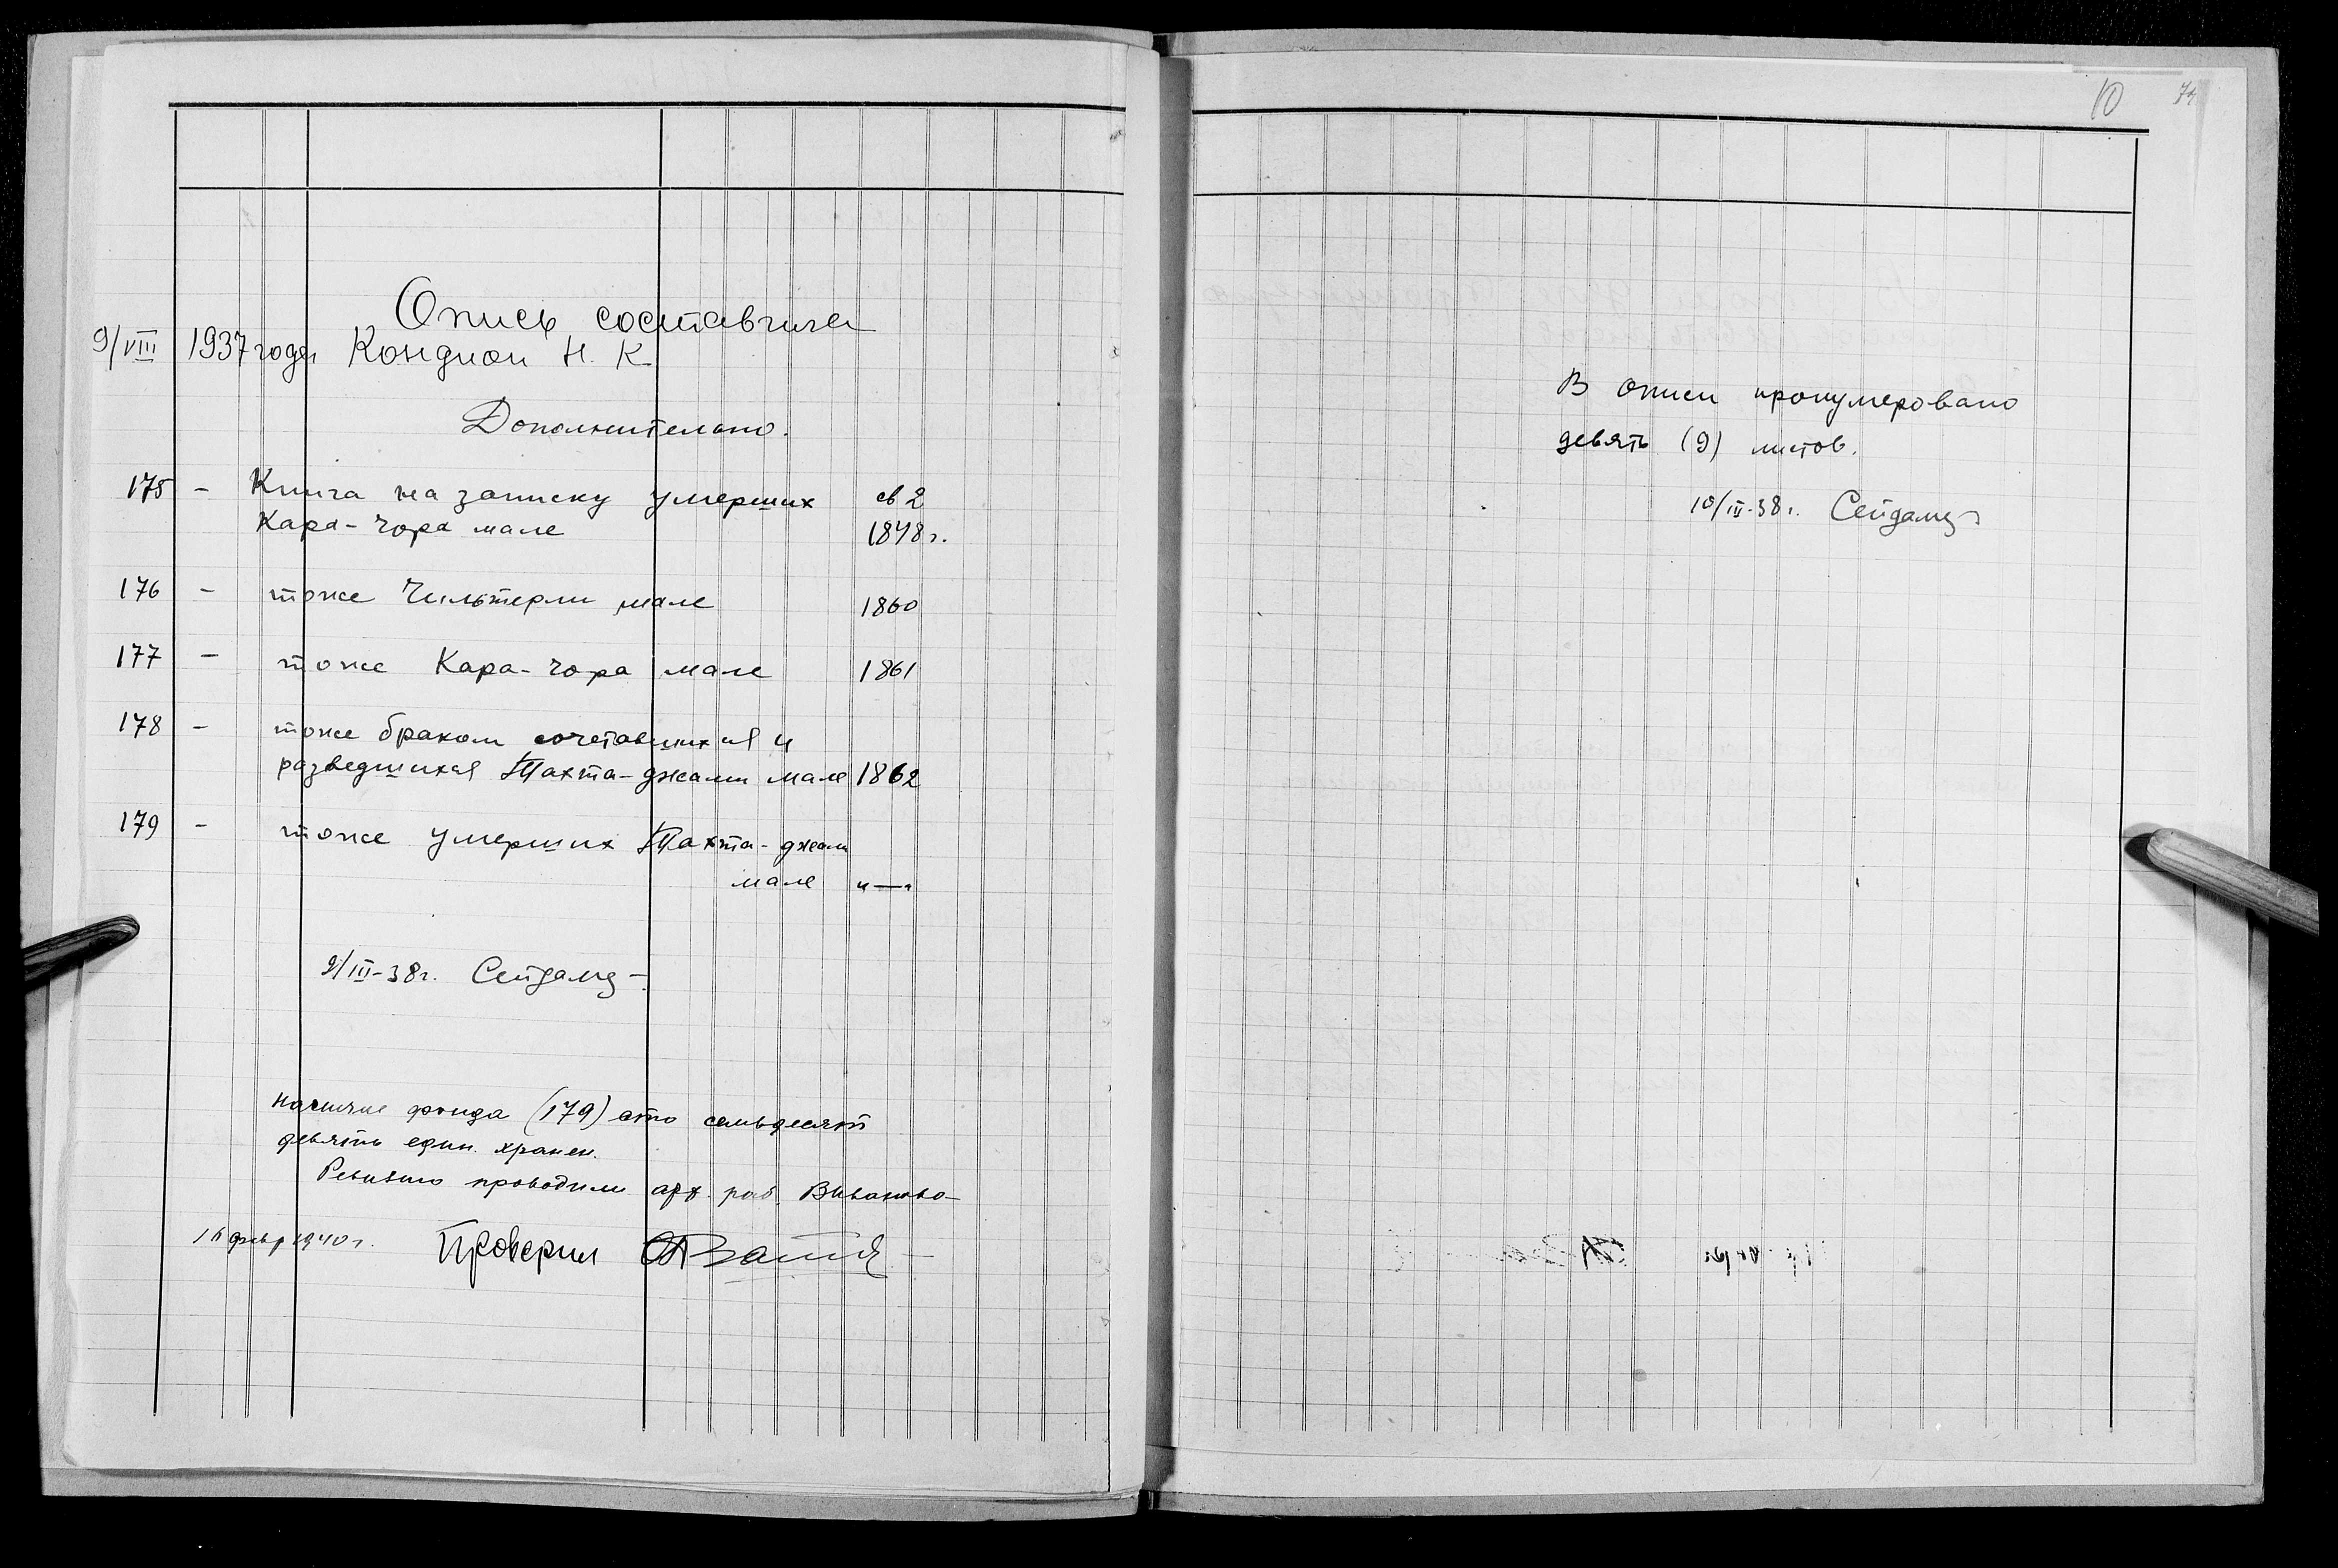 Опись составила
9/VIII 1937 года Кондиои Н. К.
Дополнительно.
175 - Книга на записку умерших св 2
Кара-чора мале 1848 г.
176 - тоже Чильтерли мале 1860
177 - тоже Кара-чора мале 1861
178 - тоже браком сочетавшихся и
разведшихся Тахта-джами мале 1862
179 - тоже умерших Тахта-джами
мале "—"
9/III-38г. Сейдамет
наличие фонда (179) сто семьдесят
девять един. хранен.
Ревизию проводили арх. раб.
16 февр 1940 г. Проверил
10 74
В описи пронумеровано
девять (9) листов.
10/III-38г. Сейдамет